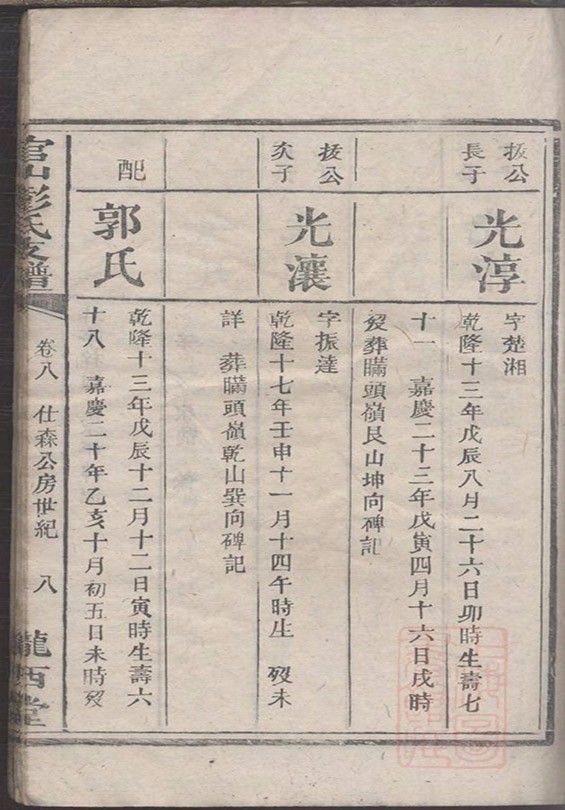 拔公
長子
光淳
字楚湘
乾隆十三年戊辰八月二十六日卯時生壽七
十一 嘉慶二十三年戊寅四月十六日戌時
歿葬瞞頭嶺艮山坤向碑記
拔公
次子
光瀼
字振達
乾隆十七年壬申十一月十四午時生 歿未
詳 葬瞞頭嶺乾山巽向碑記
配
郭氏
乾隆十三年戊辰十二月十二日寅時生壽六
十八 嘉慶二十年乙亥十月初五日未時歿
官山彭氏支譜
卷八 仕森公房世紀 八
隴西堂